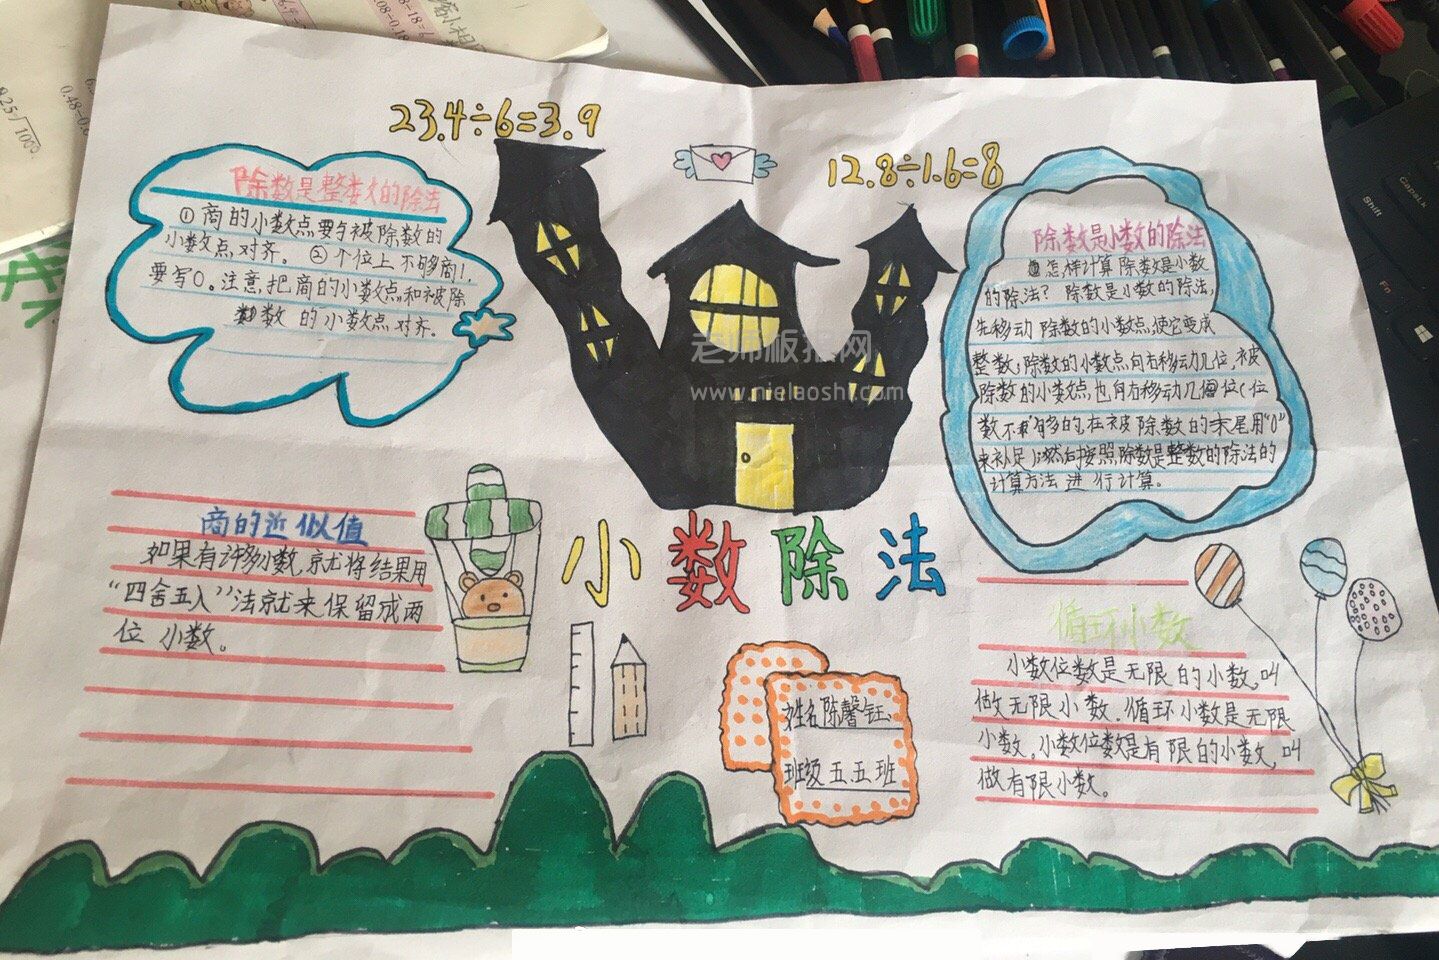 23.4÷6=3.9
12.8÷1.6=8
除数是整数的除法
①商的小数点要与被除数的
小数点对齐。②个位上不够商1.
要写0。注意把商的小数点和被除
数 的小数点对齐。
除数是小数的除法
怎样计算除数是小数
的除法?除数是小数的除法,
先移动除数的小数点,使它变成
整数;除数的小数点向右移动几位,被
除数的小数点也向右移动几位(位
数不够的,在被除数的末尾用“0”
来补足);然后按照除数是整数的除法的
计算方法进行计算。
老师板报网
www.nielaoshi.com
小数除法
商的近似值
如果有许多小数,就将结果用
“四舍五入”法就来保留成两
位小数。
姓名陈馨钰
班级五五班
循环小数
小数位数是无限的小数,叫
做无限小数.循环小数是无限
小数。小数位数是有限的小数,叫
做有限小数。
Shift
CapsLk
Fn